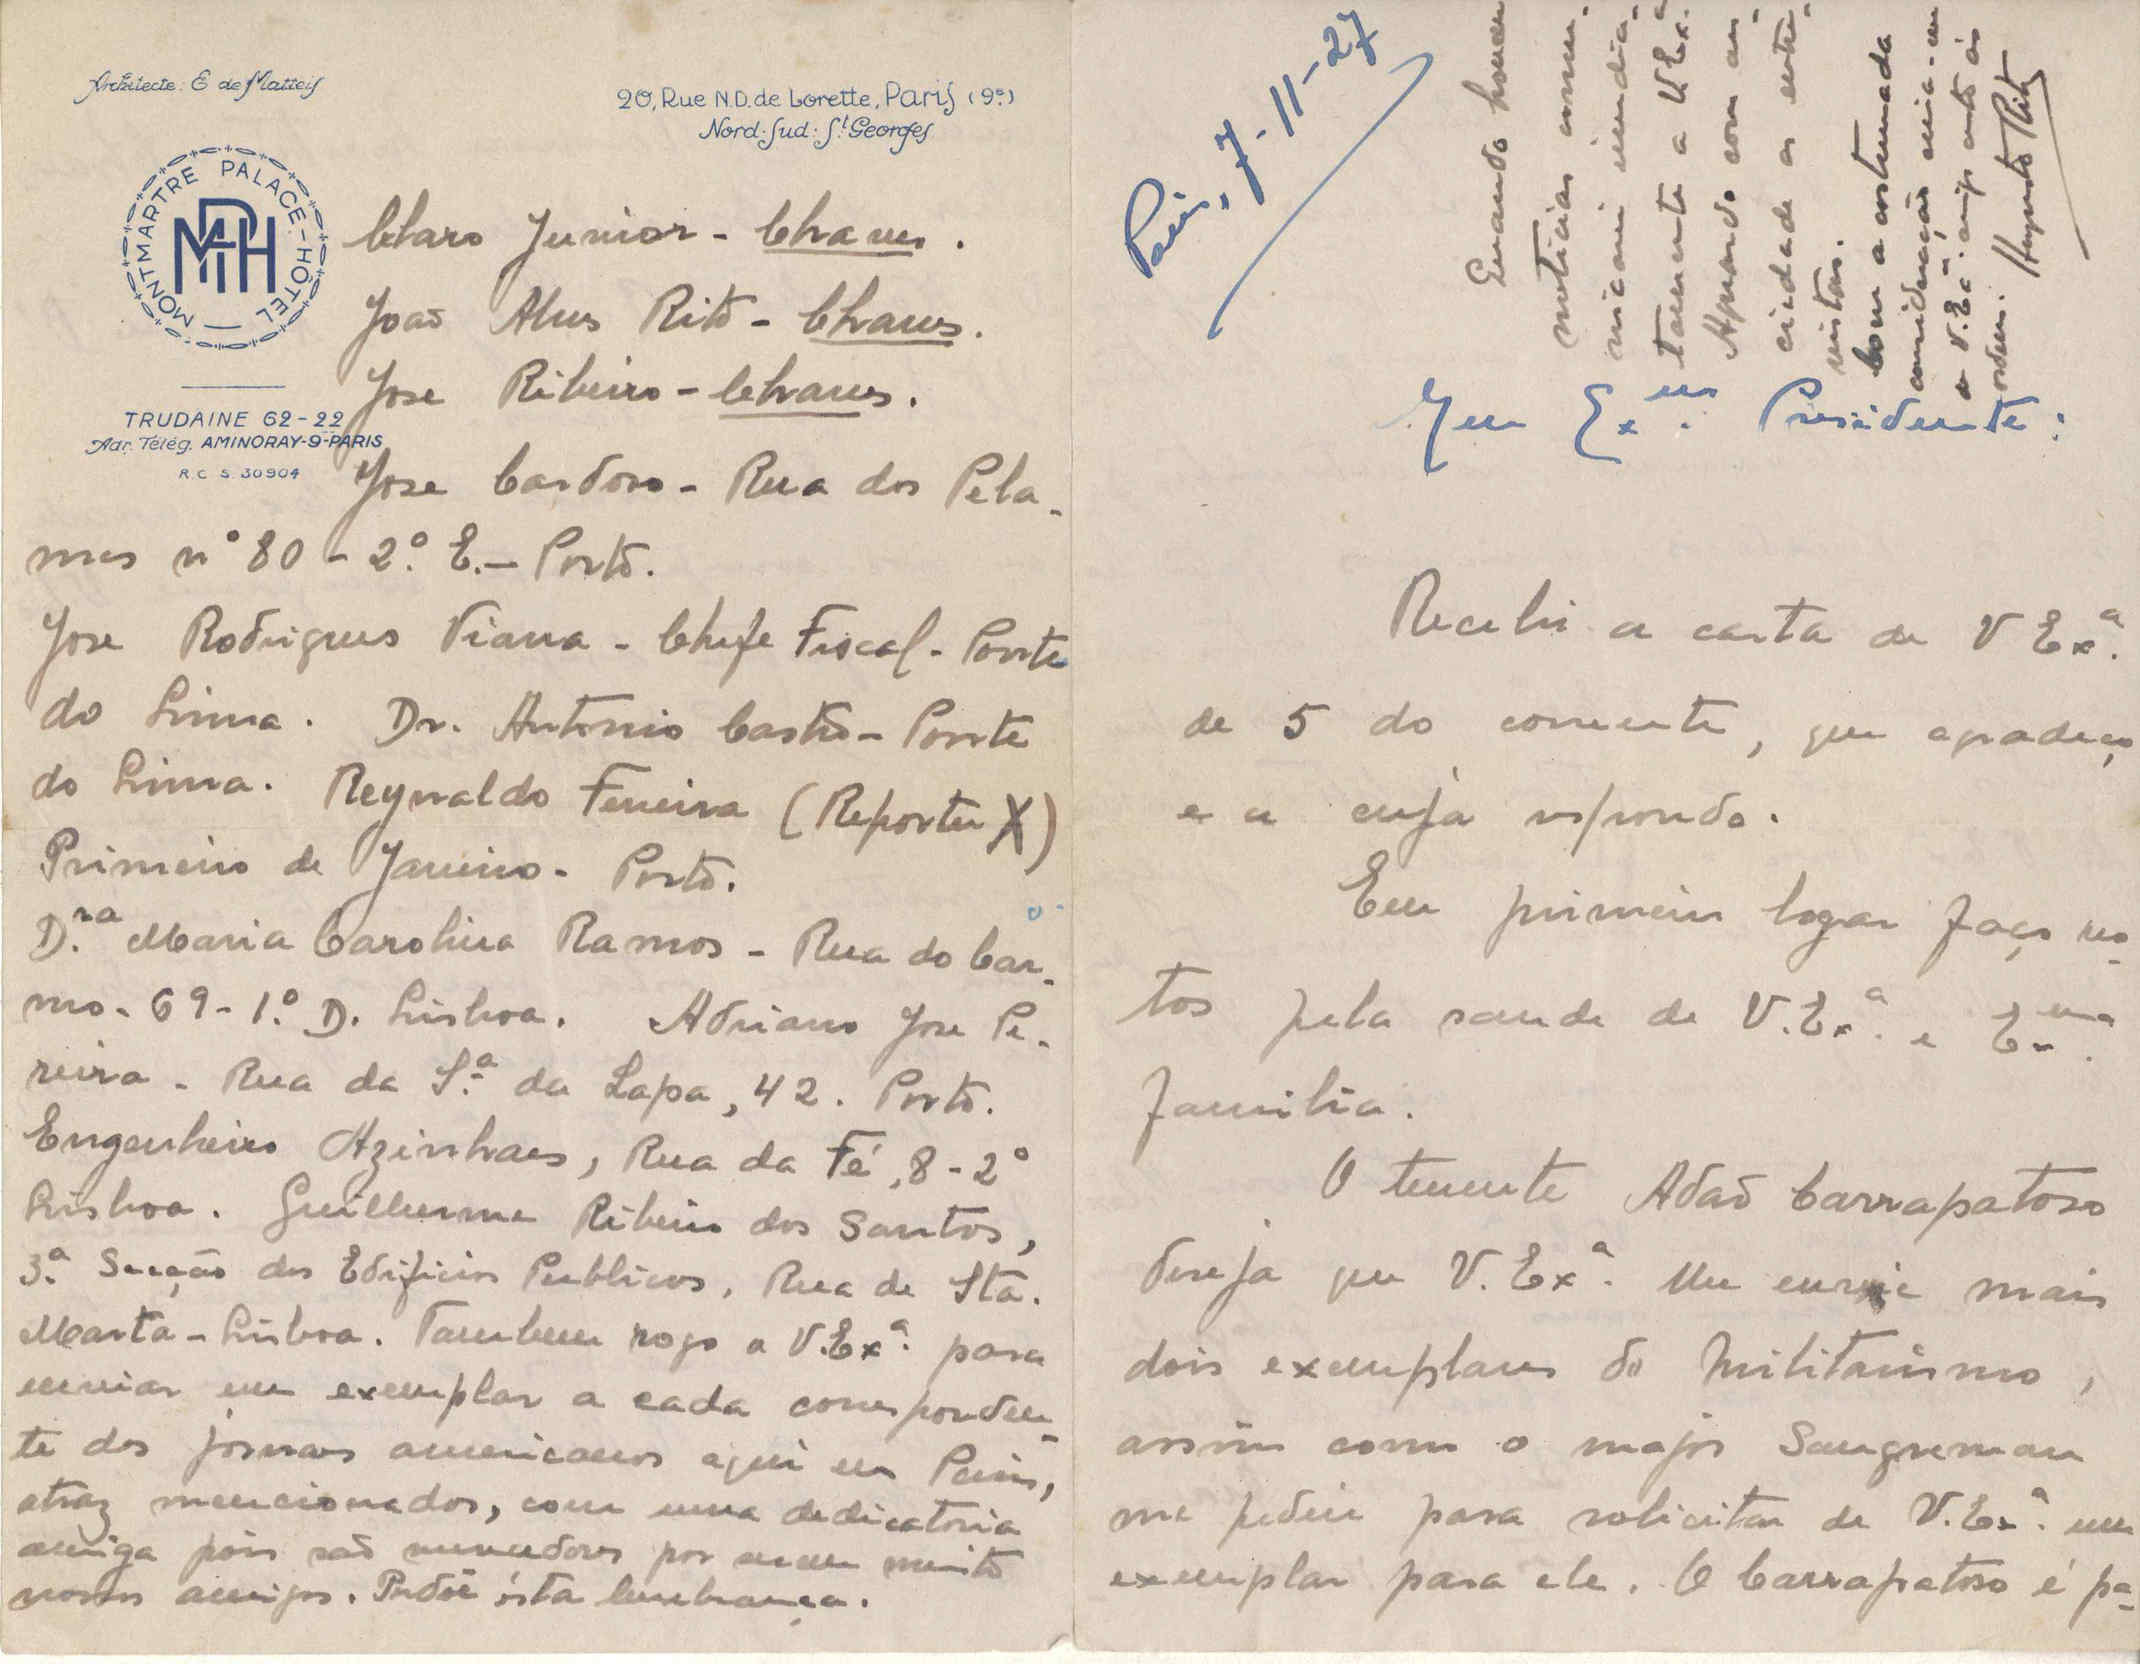 Architecte: E de Matteis
20, Rue N.D. de Lorette, Paris (9e)
Nord-Sud: St Georges
MONTMARTRE PALACE-HÔTEL
MPH
TRUDAINE 62-22
Adr. Télég. AMINORAY-9-PARIS
R.C S. 30904
Claro Junior - Chaves.
João Alves Rito - Chaves.
Jose Ribeiro - Chaves.
Jose Cardoso - Rua dos Pela-
mes nº 80 - 2º. E. - Porto.
Jose Rodrigues Viana - Chefe Fiscal - Ponte
do Lima. Dr. Antonio Castro - Ponte
do Lima. Reynaldo Ferreira (Reporter X)
Primeiro de Janeiro - Porto.
D.ra Maria Carolina Ramos - Rua do Car-
mo - 69 - 1º. D. Lisboa. Adriano Jose Pe-
reira - Rua da S.ª da Lapa, 42. Porto.
Engenheiro Azinhaes, Rua da Fé, 8 - 2º
Lisboa. Guilherme Ribeiro dos Santos,
3.ª Secção dos Edificios Publicos, Rua de Sta.
Marta - Lisboa. Tambem rogo a V.Ex.ª para
enviar um exemplar a cada corresponden-
te dos jornaes americanos aqui em Paris,
atraz mencionados, com uma dedicatoria
amiga pois são merecedores por serem muito
nossos amigos. Perdôe ésta lembrança.
Paris, 7-11-27
Meu Ex.mo Presidente:
Recebi a carta de V Ex.ª
de 5 do corrente, que agradeço
e a cuja respondo.
Em primeiro logar faço vo-
tos pela saude de V.Ex.ª e Ex.ma
familia.
O tenente Adão Carrapatoso
deseja que V.Ex.ª lhe envie mais
dois exemplares do Militarismo,
assim como o major Sangreman
me pediu para solicitar de V.Ex.ª um
exemplar para ele. O Carrapatoso é pa-
Quando houver
noticias comu-
nicarei imedia-
tamente a V Ex.ª
Aguardo com an-
ciedade as entre-
vistas.
Com a costumada
consideração creia-me
de V.Ex.ª amigo ás
ordens. Augusto Rito